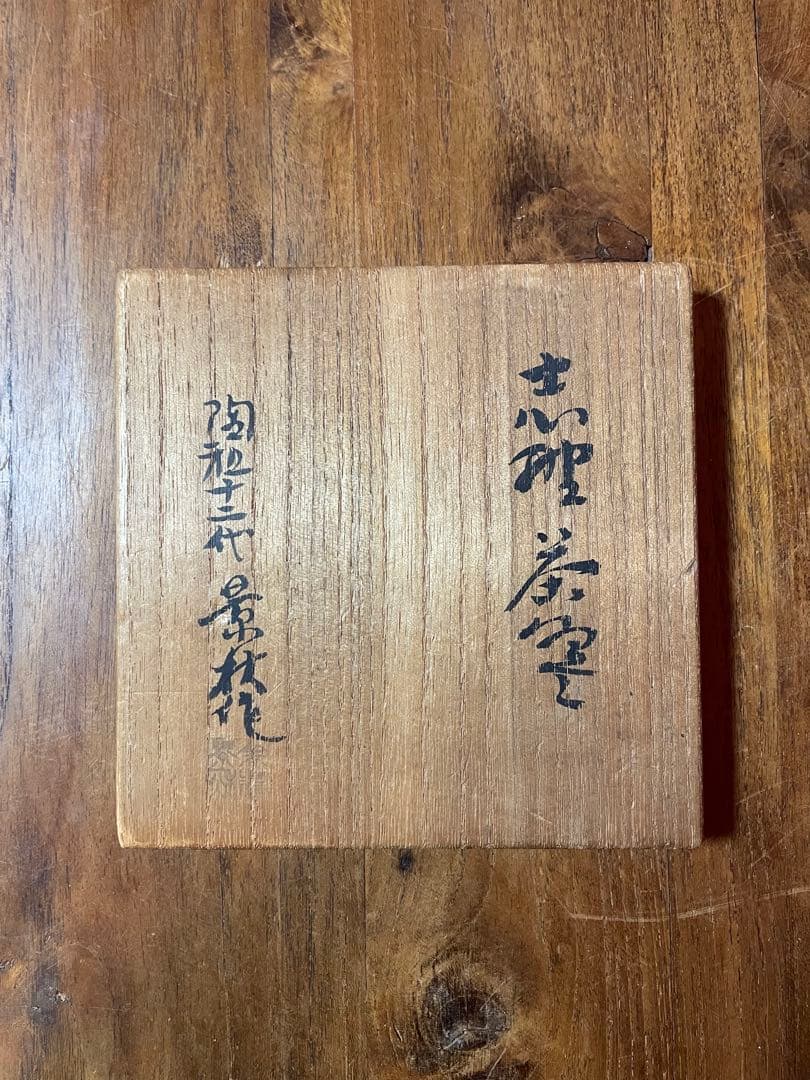 志野茶盌
陶祖十二代 景秋作